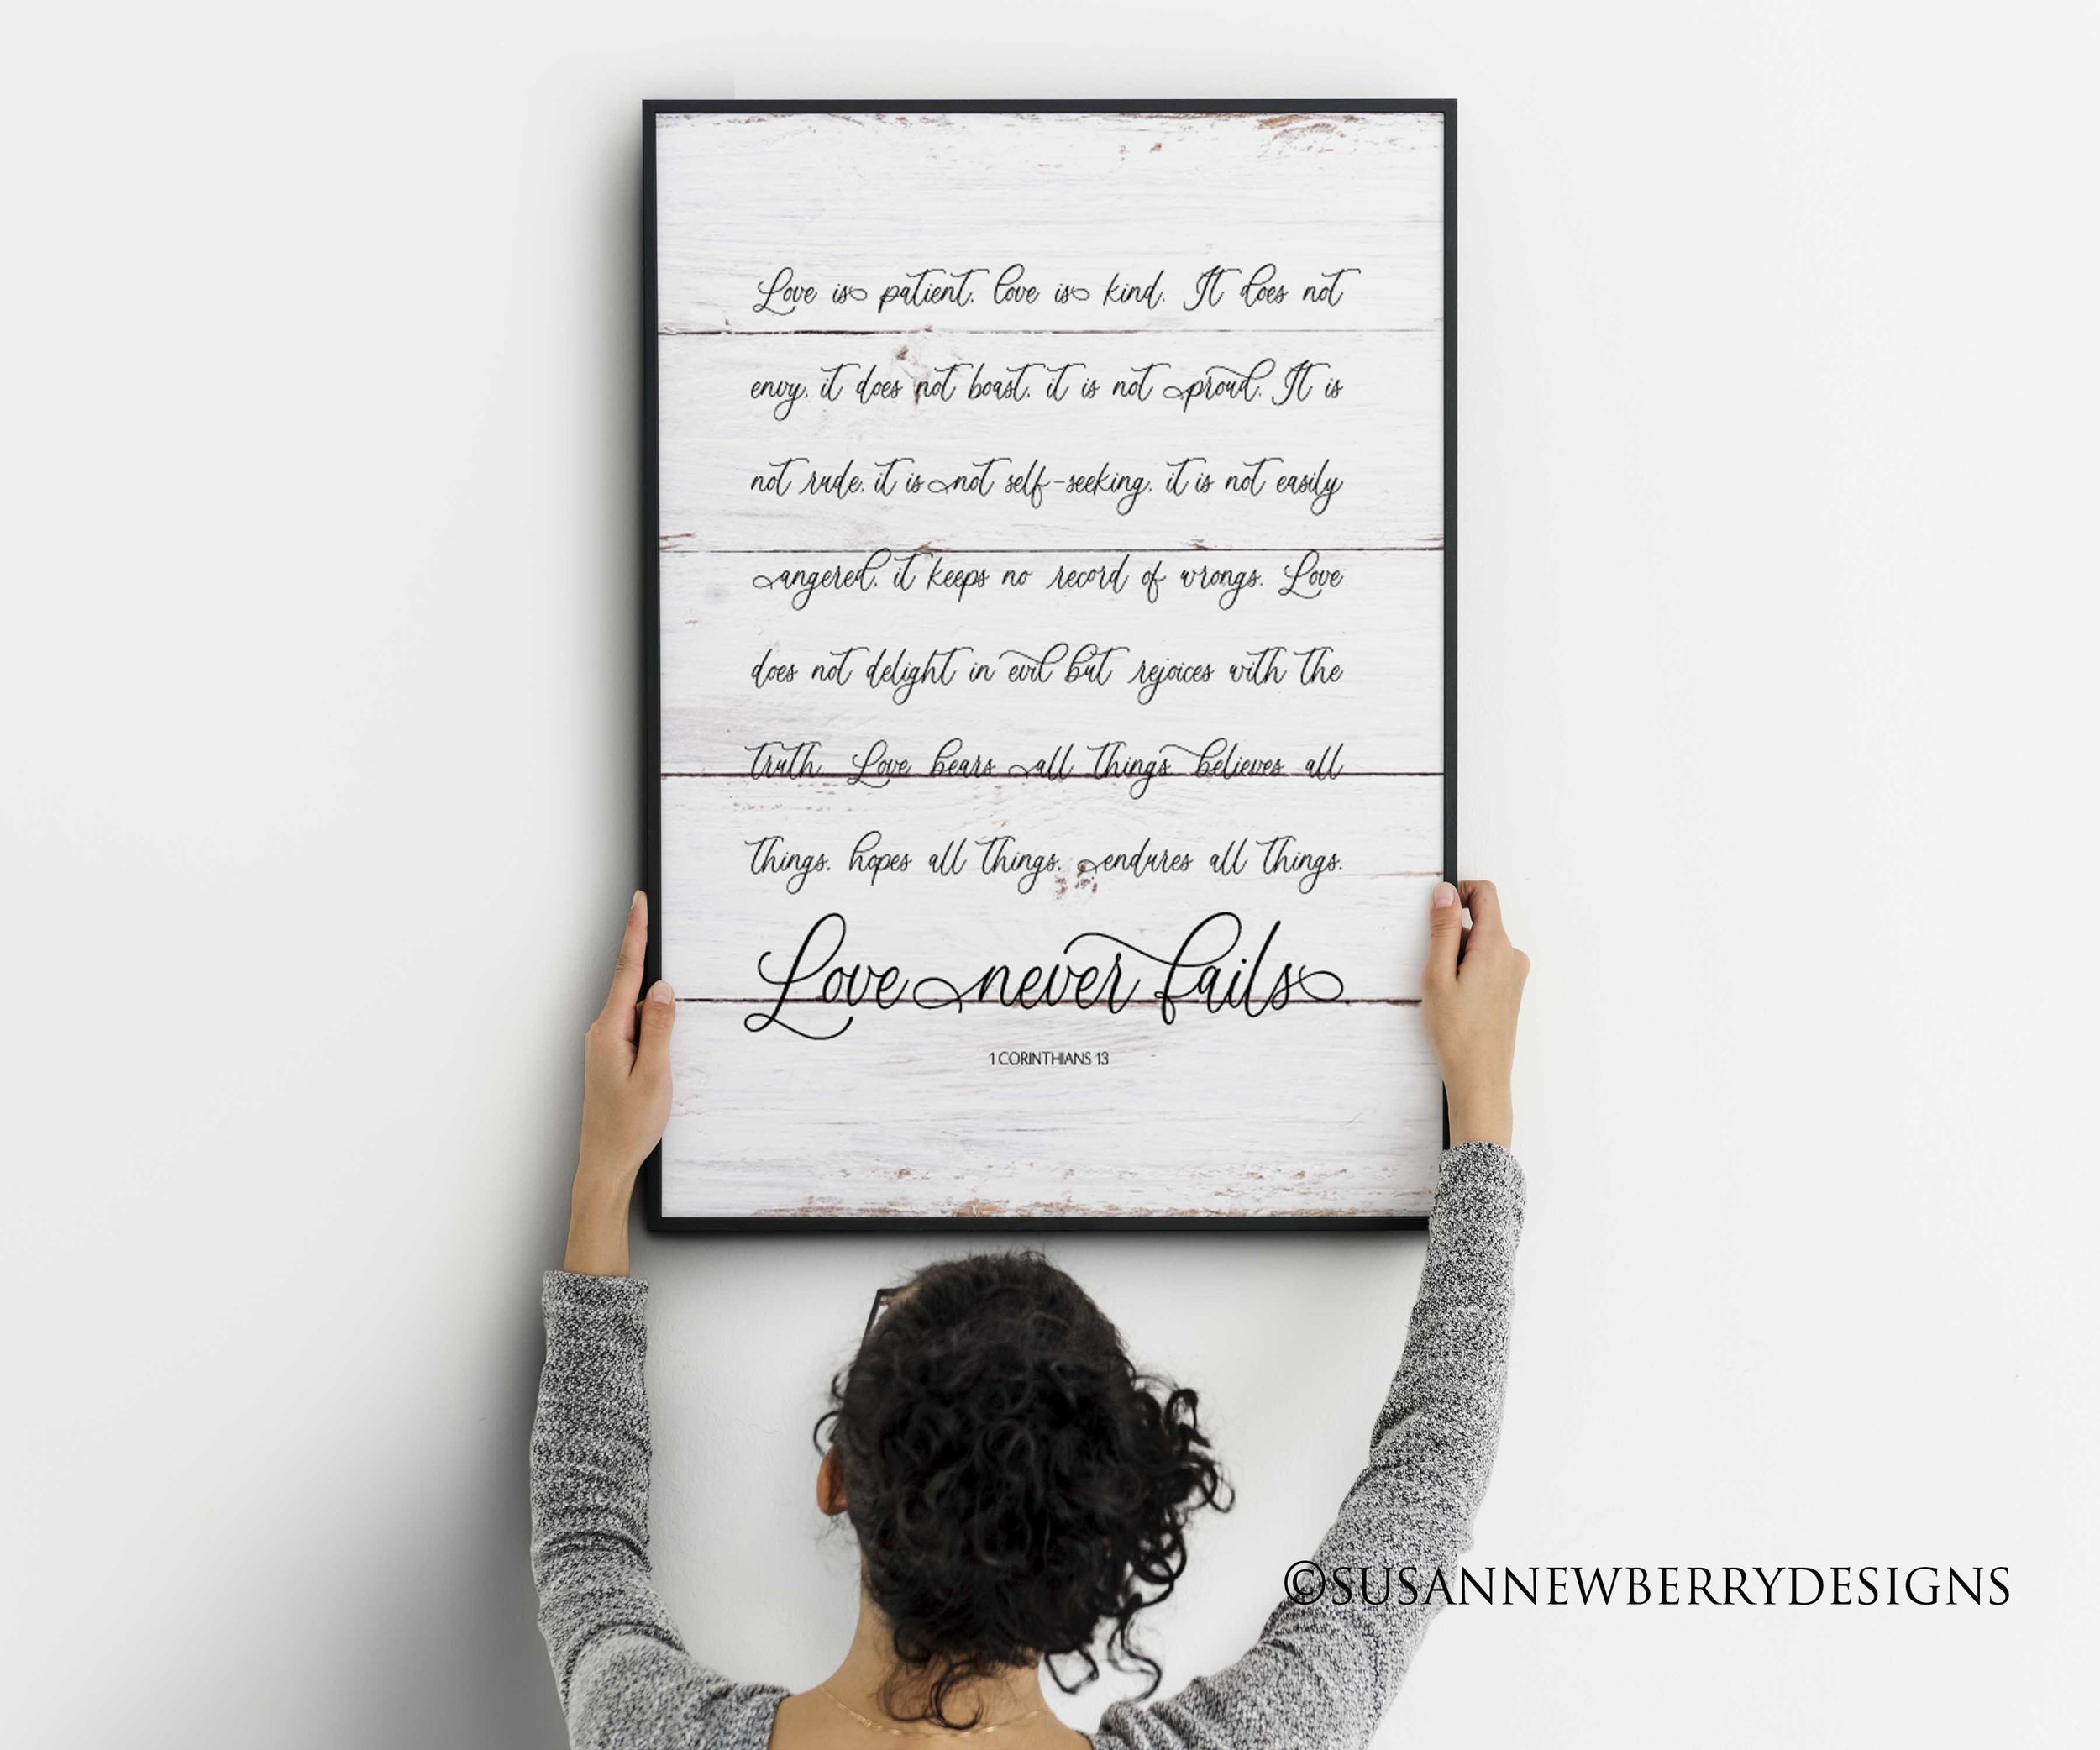 Love is patient, love is kind. It does not
envy, it does not boast, it is not proud. It is
not rude, it is not self-seeking, it is not easily
angered, it keeps no record of wrongs. Love
does not delight in evil but rejoices with the
truth. Love bears all things believes all
things, hopes all things, endures all things.
Love never fails.
1 CORINTHIANS 13
©SUSANNEWBERRYDESIGNS